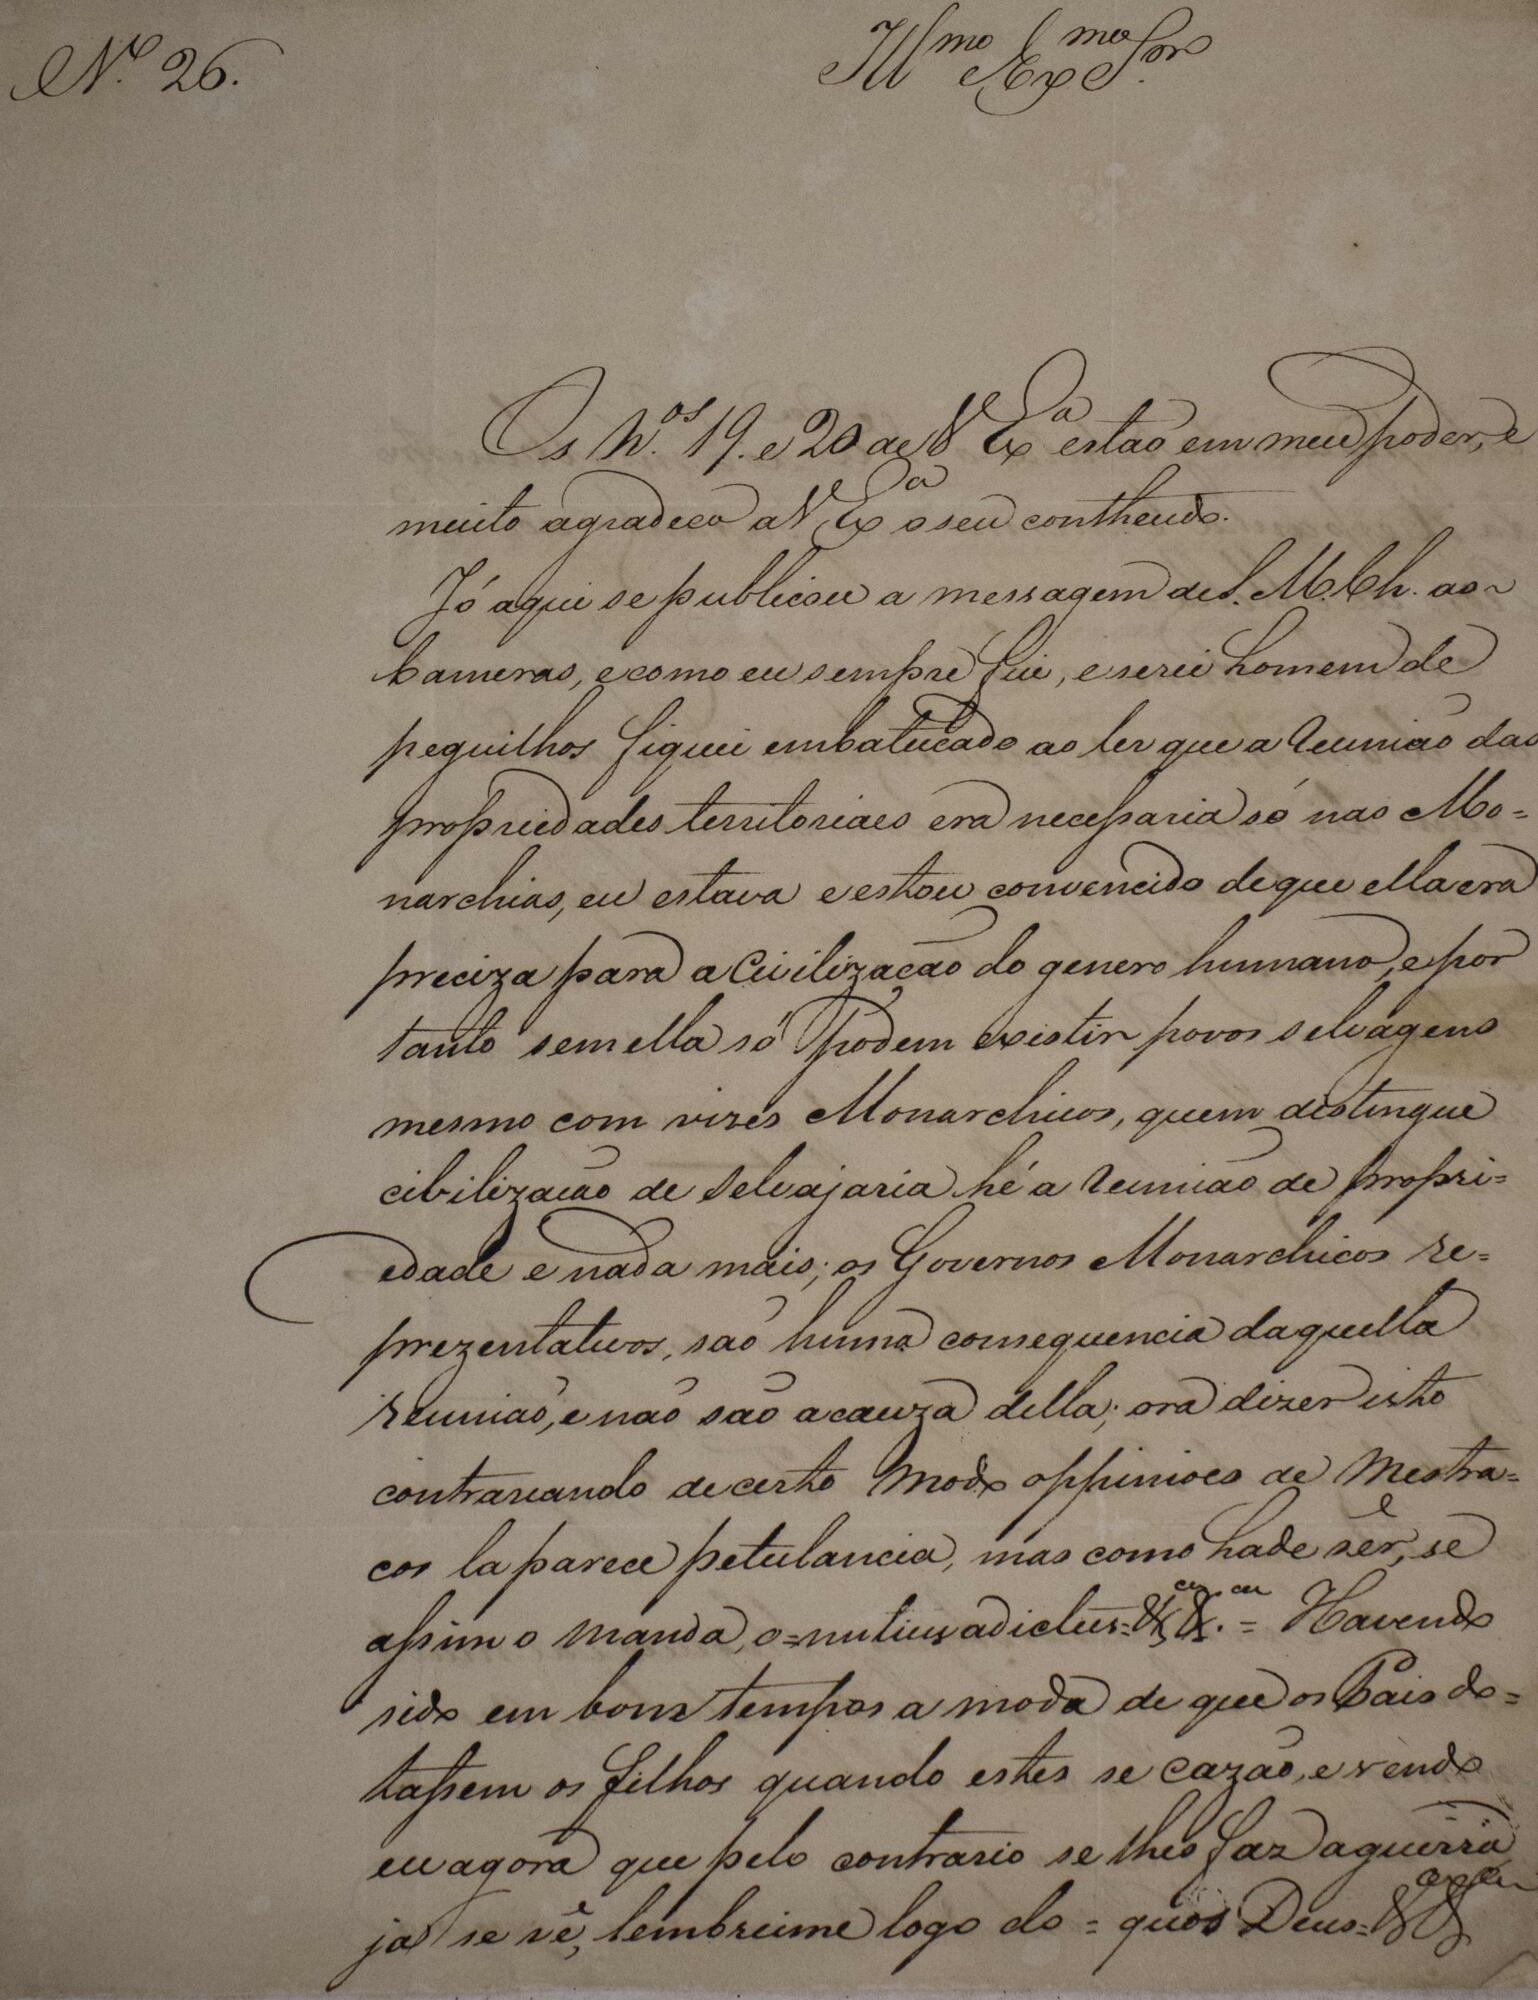 N.º 26.
Illmo Exmo Snr
Os N.os 19. e 20 de V Exª estão em meu poder, e
muito agradeço a V Exª o seu contheudo.
Já aqui se publicou a messagem de S. M. Ch. as
Cameras, e como eu sempre fui, e serei homem de
peguilhos fiquei embatucado ao ler que a reunião das
propriedades territoriaes era necessaria só nas Mo=
narchias, eu estava e estou convencido de que ella era
preciza para a Civilização do genero humano, e por
tanto sem ella só podem existir povos selvagens
mesmo com vizes Monarchicos, quem distingue
cibilização de selvajaria hé a reunião de propri=
edade e nada mais; os Governos Monarchicos re=
prezentativos, são huma consequencia daquella
reunião, e não são a cauza della; ora dizer isto
contrareando de certo modo oppinioes de Mestra=
cos la parece petulancia, mas como hade sêr, se
assim o manda, o = nulius adictus = &ca &. ca = Havendo
sido em bons tempos a moda de que os Pais do=
tassem os filhos quando estes se cazão, e vendo
eu agora que pelo contrario se lhes faz a guerra
já se vê, lembreime logo do = quos Deus = &